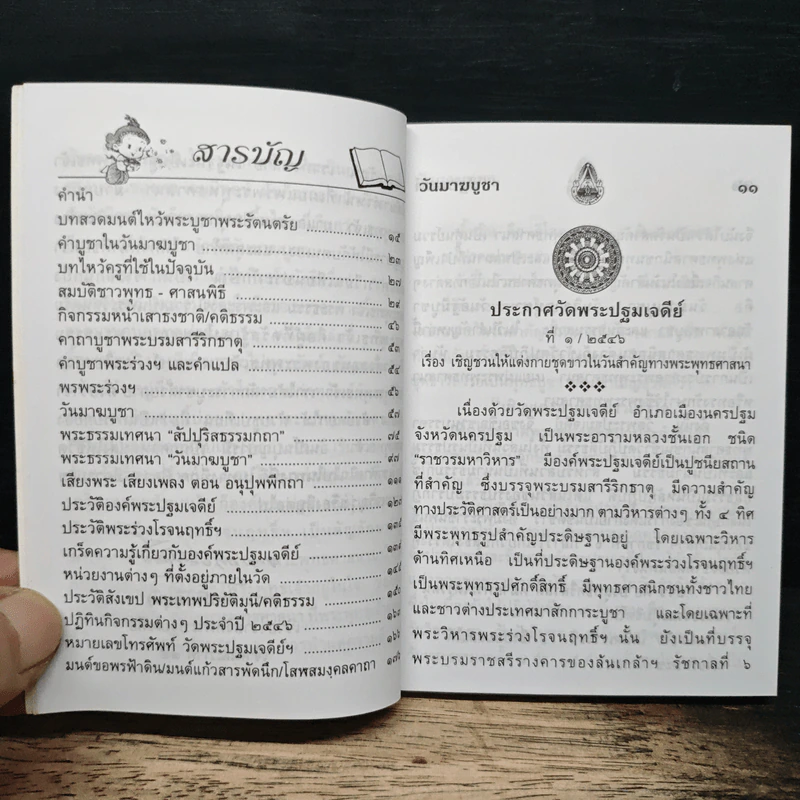 สารบัญ
คำนำ
บทสวดมนต์ไหว้พระบูชาพระรัตนตรัย ๑๕
คำบูชาในวันมาฆบูชา ๒๓
บทไหว้ครูที่ใช้ในปัจจุบัน ๒๗
สมบัติชาวพุทธ - ศาสนพิธี ๒๙
กิจกรรมหน้าเสาธงชาติ/คติธรรม ๔๖
คาถาบูชาพระบรมสารีริกธาตุ ๕๓
คำบูชาพระร่วงฯ และคำแปล ๕๔
พรพระร่วงฯ ๕๖
วันมาฆบูชา ๕๗
พระธรรมเทศนา "สัปปุริสธรรมกถา" ๗๕
พระธรรมเทศนา "วันมาฆบูชา" ๙๗
เสียงพระ เสียงเพลง ตอน อนุปุพพีกถา ๑๑๑
ประวัติองค์พระปฐมเจดีย์ ๑๒๗
ประวัติพระร่วงโรจนฤทธิ์ฯ ๑๓๕
เกร็ดความรู้เกี่ยวกับองค์พระปฐมเจดีย์ ๑๓๙
หน่วยงานต่างๆ ที่ตั้งอยู่ภายในวัด ๑๔๕
ประวัติสังเขป พระเทพปริยัติมุนี/คติธรรม ๑๕๘
ปฏิทินกิจกรรมต่างๆ ประจำปี ๒๕๔๖ ๑๖๔
หมายเลขโทรศัพท์ วัดพระปฐมเจดีย์ฯ ๑๖๖
มนต์ขอพรฟ้าดิน/มนต์แก้วสารพัดนึก/โสฬสมงคลคาถา ๑๗๖
วันมาฆบูชา ๑๑
ประกาศวัดพระปฐมเจดีย์
ที่ ๑ / ๒๕๔๖
เรื่อง เชิญชวนให้แต่งกายชุดขาวในวันสำคัญทางพระพุทธศาสนา
เนื่องด้วยวัดพระปฐมเจดีย์ อำเภอเมืองนครปฐม
จังหวัดนครปฐม เป็นพระอารามหลวงชั้นเอก ชนิด
"ราชวรมหาวิหาร" มีองค์พระปฐมเจดีย์เป็นปูชนียสถาน
ที่สำคัญ ซึ่งบรรจุพระบรมสารีริกธาตุ มีความสำคัญ
ทางประวัติศาสตร์เป็นอย่างมาก ตามวิหารต่างๆ ทั้ง ๔ ทิศ
มีพระพุทธรูปสำคัญประดิษฐานอยู่ โดยเฉพาะวิหาร
ด้านทิศเหนือ เป็นที่ประดิษฐานองค์พระร่วงโรจนฤทธิ์ฯ
เป็นพระพุทธรูปศักดิ์สิทธิ์ มีพุทธศาสนิกชนทั้งชาวไทย
และชาวต่างประเทศมาสักการะบูชา และโดยเฉพาะที่
พระวิหารพระร่วงโรจนฤทธิ์ฯ นั้น ยังเป็นที่บรรจุ
พระบรมราชสรีรางคารของล้นเกล้าฯ รัชกาลที่ ๖